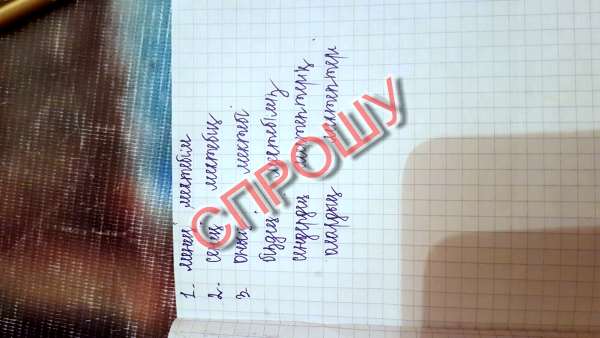 1. менің мектебім
2. сенің мектебің
3. оның мектебі
біздің мектебіміз
сендердің мектептерің
олардың мектептері
СПРОШУ